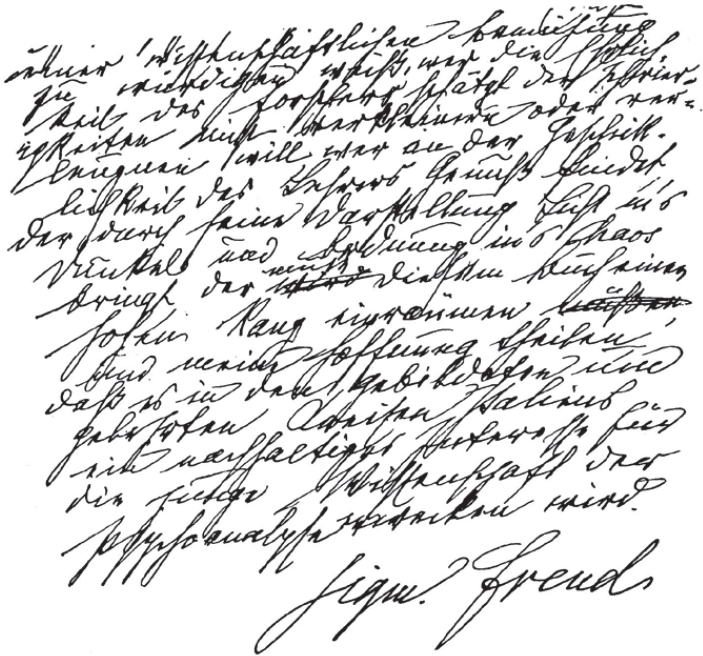 einer wissenschaftlichen Bemühung
zu würdigen weiß, wer die Ehrlich-
keit des Forschers schätzt der Schwier-
igkeiten nicht verkleinern oder ver-
leugnen will wer an der Geschick-
lichkeit des Lehrers Genuß findet,
der durch seine Darstellung Licht in's
Dunkel und Ordnung in's Chaos
bringt der muß diesem Buch einen
hohen Rang einräumen
und meine Hoffnung theilen,
daß es in den gebildeten und
gelehrten Kreisen Italiens
ein nachhaltiges Interesse für
die junge Wissenschaft der
Psychoanalyse erwecken wird.
Sigm. Freud